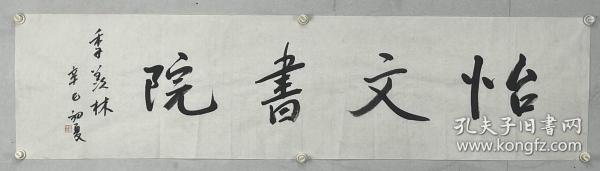 怡文書院
季羡林
辛巳初夏
孔夫子旧书网
www.kongfz.com